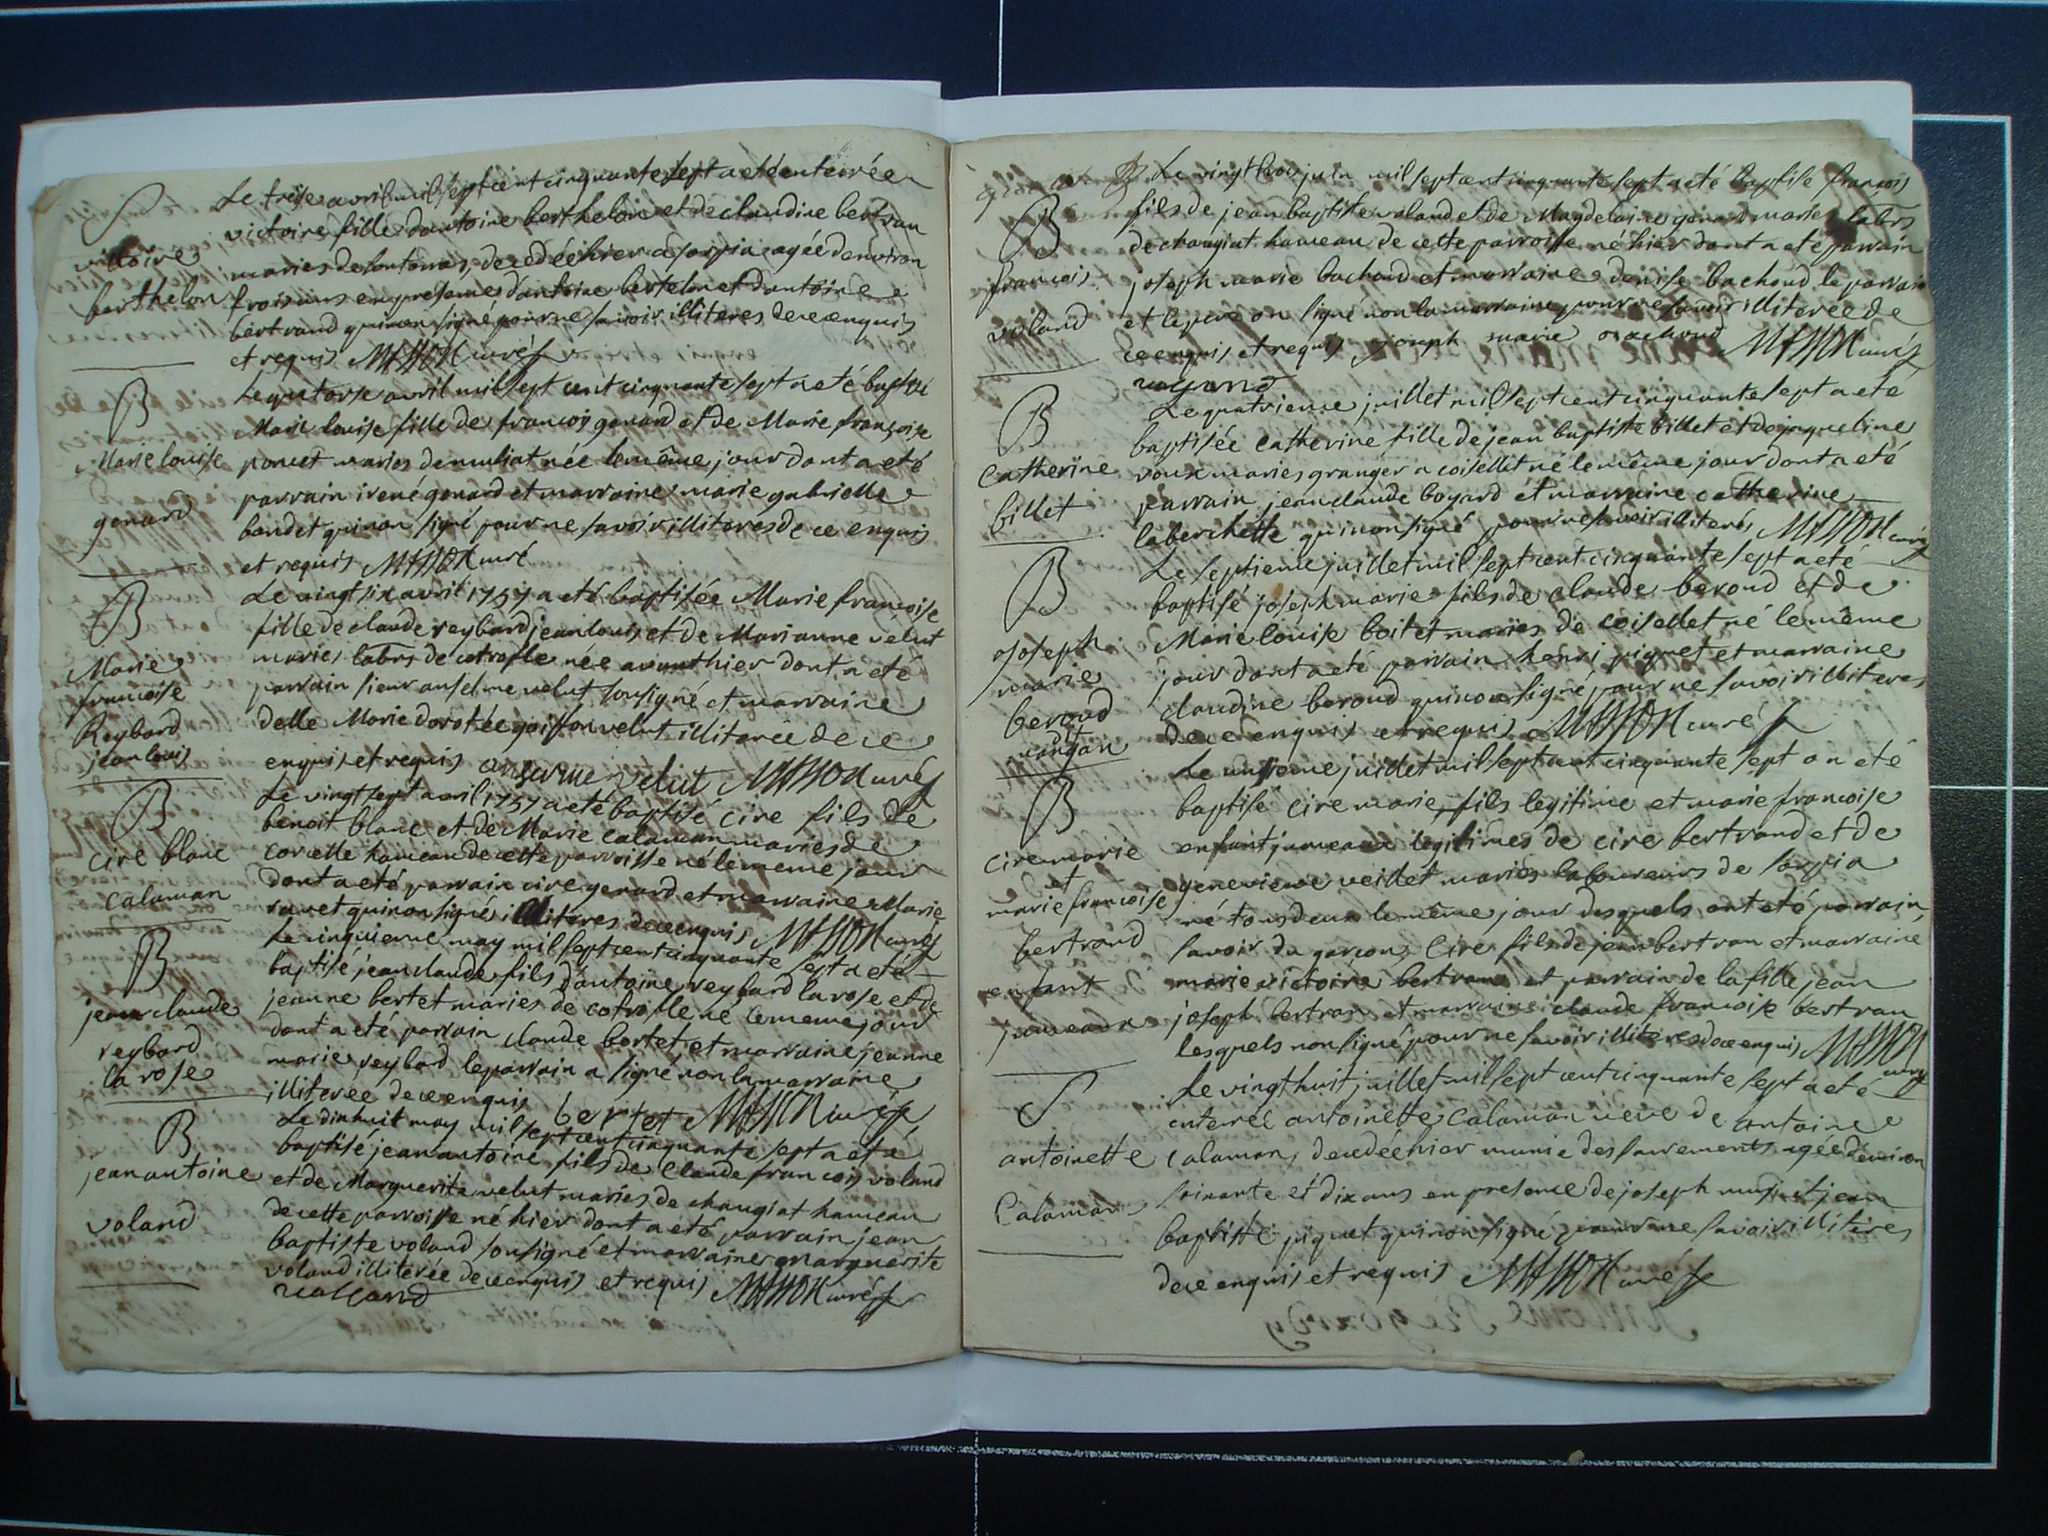 S
victoire
berthelon
Le treise avril mil sept cent cinquante sept a eté enterrée
victoire fille dantoine berthelon et de claudine bertran
maries de decedée hier a agée denviron
trois ans en presence dantoine bertelon et dantoine
bertrand qui non signé pour ne savoir illiteres de ce enquis
et requis MASSON curé
B
Marie louise
gonard
Le quatorse avril mil sept cent cinquante sept a eté baptisé
Marie louise fille de francois gonard et de Marie françoise
poncet maries demuliat née le même jour dont a eté
parrain irené gonard et marraine marie gabrielle
baudet qui non signé pour ne savoir illiteres de ce enquis
et requis MASSON curé
B
Marie
francoise
Reybard
jean louis
Le vingt six avril 1757 a eté baptisée Marie francoise
fille de claude reybard jean louis et de Marianne velut
maries labrs de cotrofle née avant hier dont a eté
parrain sieur anselme velut sousigné et marraine
delle Marie dorotée velut illiterée de ce
enquis et requis anserme velut MASSON curé
B
cire blanc
calaman
Le vingt sept avril 1757 a eté baptisé cire fils de
benoit blanc et de Marie calaman maries de
corcelle hameau de cette parroisse né le meme jour
dont a eté parrain cire gonard et marraine Marie
ravet qui non signés illiteres de ce enquis MASSON curé
B
jean claude
reybard
la rose
Le cinquieme may mil sept cent cinquante sept a eté
baptisé jean claude fils dantoine reybard la rose et de
jeanne bertet maries de cotrofle né le meme jour
dont a eté parrain claude bertet et marraine jeanne
marie reybard le parrain a signé non la marraine
illiteree de ce enquis bertet MASSON curé
B
jean antoine
voland
Le dixhuit may mil sept cent cinquante sept a eté
baptisé jean antoine fils de Claude francois voland
et de Marguerite velut maries de changiat hameau
de cette parroisse né hier dont a eté parrain jean
baptiste voland sousigné et marraine marguerite
voland illiterée de ce enquis et requis MASSON curé
voland
B
francois
voland
Le vingt trois juin mil sept cent cinquante sept a eté baptisé francois
fils de jean baptiste voland et de Magdelaine gonard maries labrs
de changiat hameau de cette parroisse né hier dont a eté parrain
joseph marie bachoud et marraine denise bachoud le parrain
et le pere on signé non la marraine pour ne savoir illiterée de
ce enquis et requis joseph marie bachoud MASSON curé
voland
B
Catherine
billet
Le quatrieme juillet mil sept cent cinquante sept a eté
baptisée catherine fille de jean baptiste billet et de jaqueline
roux maries granger a coisellet né le même jour dont a eté
parrain jean claude boyard et marraine catherine
laberchette qui non signé pour ne savoir illiterés MASSON curé
B
joseph
marie
beroud
Le septieme juillet mil sept cent cinquante sept a eté
baptisé joseph marie fils de claude beroud et de
Marie louise boitet maries de coisellet né le même
jour dont a eté parrain henri piquet et marraine
claudine beroud qui non signé pour ne savoir illiteres
de ce enquis et requis MASSON curé
B
cire marie
et
marie francoise
bertrand
enfant
jumeaux
Le unsieme juillet mil sept cent cinquante sept on eté
baptisé cire marie fils legitime et marie francoise
enfant jumeaux legitimes de cire bertrand et de
genevieve veillet mariés laboureurs de
né tous deux le même jour desquels ont eté parrain
savoir du garçon Cire fils de jean bertran et marraine
marie victoire bertrand et parrain de la fille jean
joseph bertran et marraine claude francoise bertran
lesquels non signé pour ne savoir illiteres de ce enquis MASSON
curé
S
antoinette
Calaman
Le vingt huit juillet mil sept cent cinquante sept a eté
enterée antoinette calaman veuve de antoine
calaman decedée hier munie des sacrements agée denviron
soixante et dix ans en presence de joseph et jean
baptiste piquet qui non signé pour ne savoir illitères
de ce enquis et requis MASSON curé